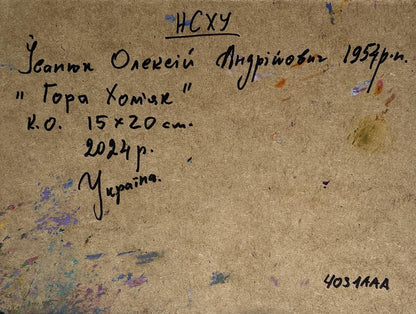 НСХУ
Іванюк Олексій Андрійович 1954р.н.
"Гора Хом'як"
к.о. 15×20 см.
2024р.
Україна.
4031AAA